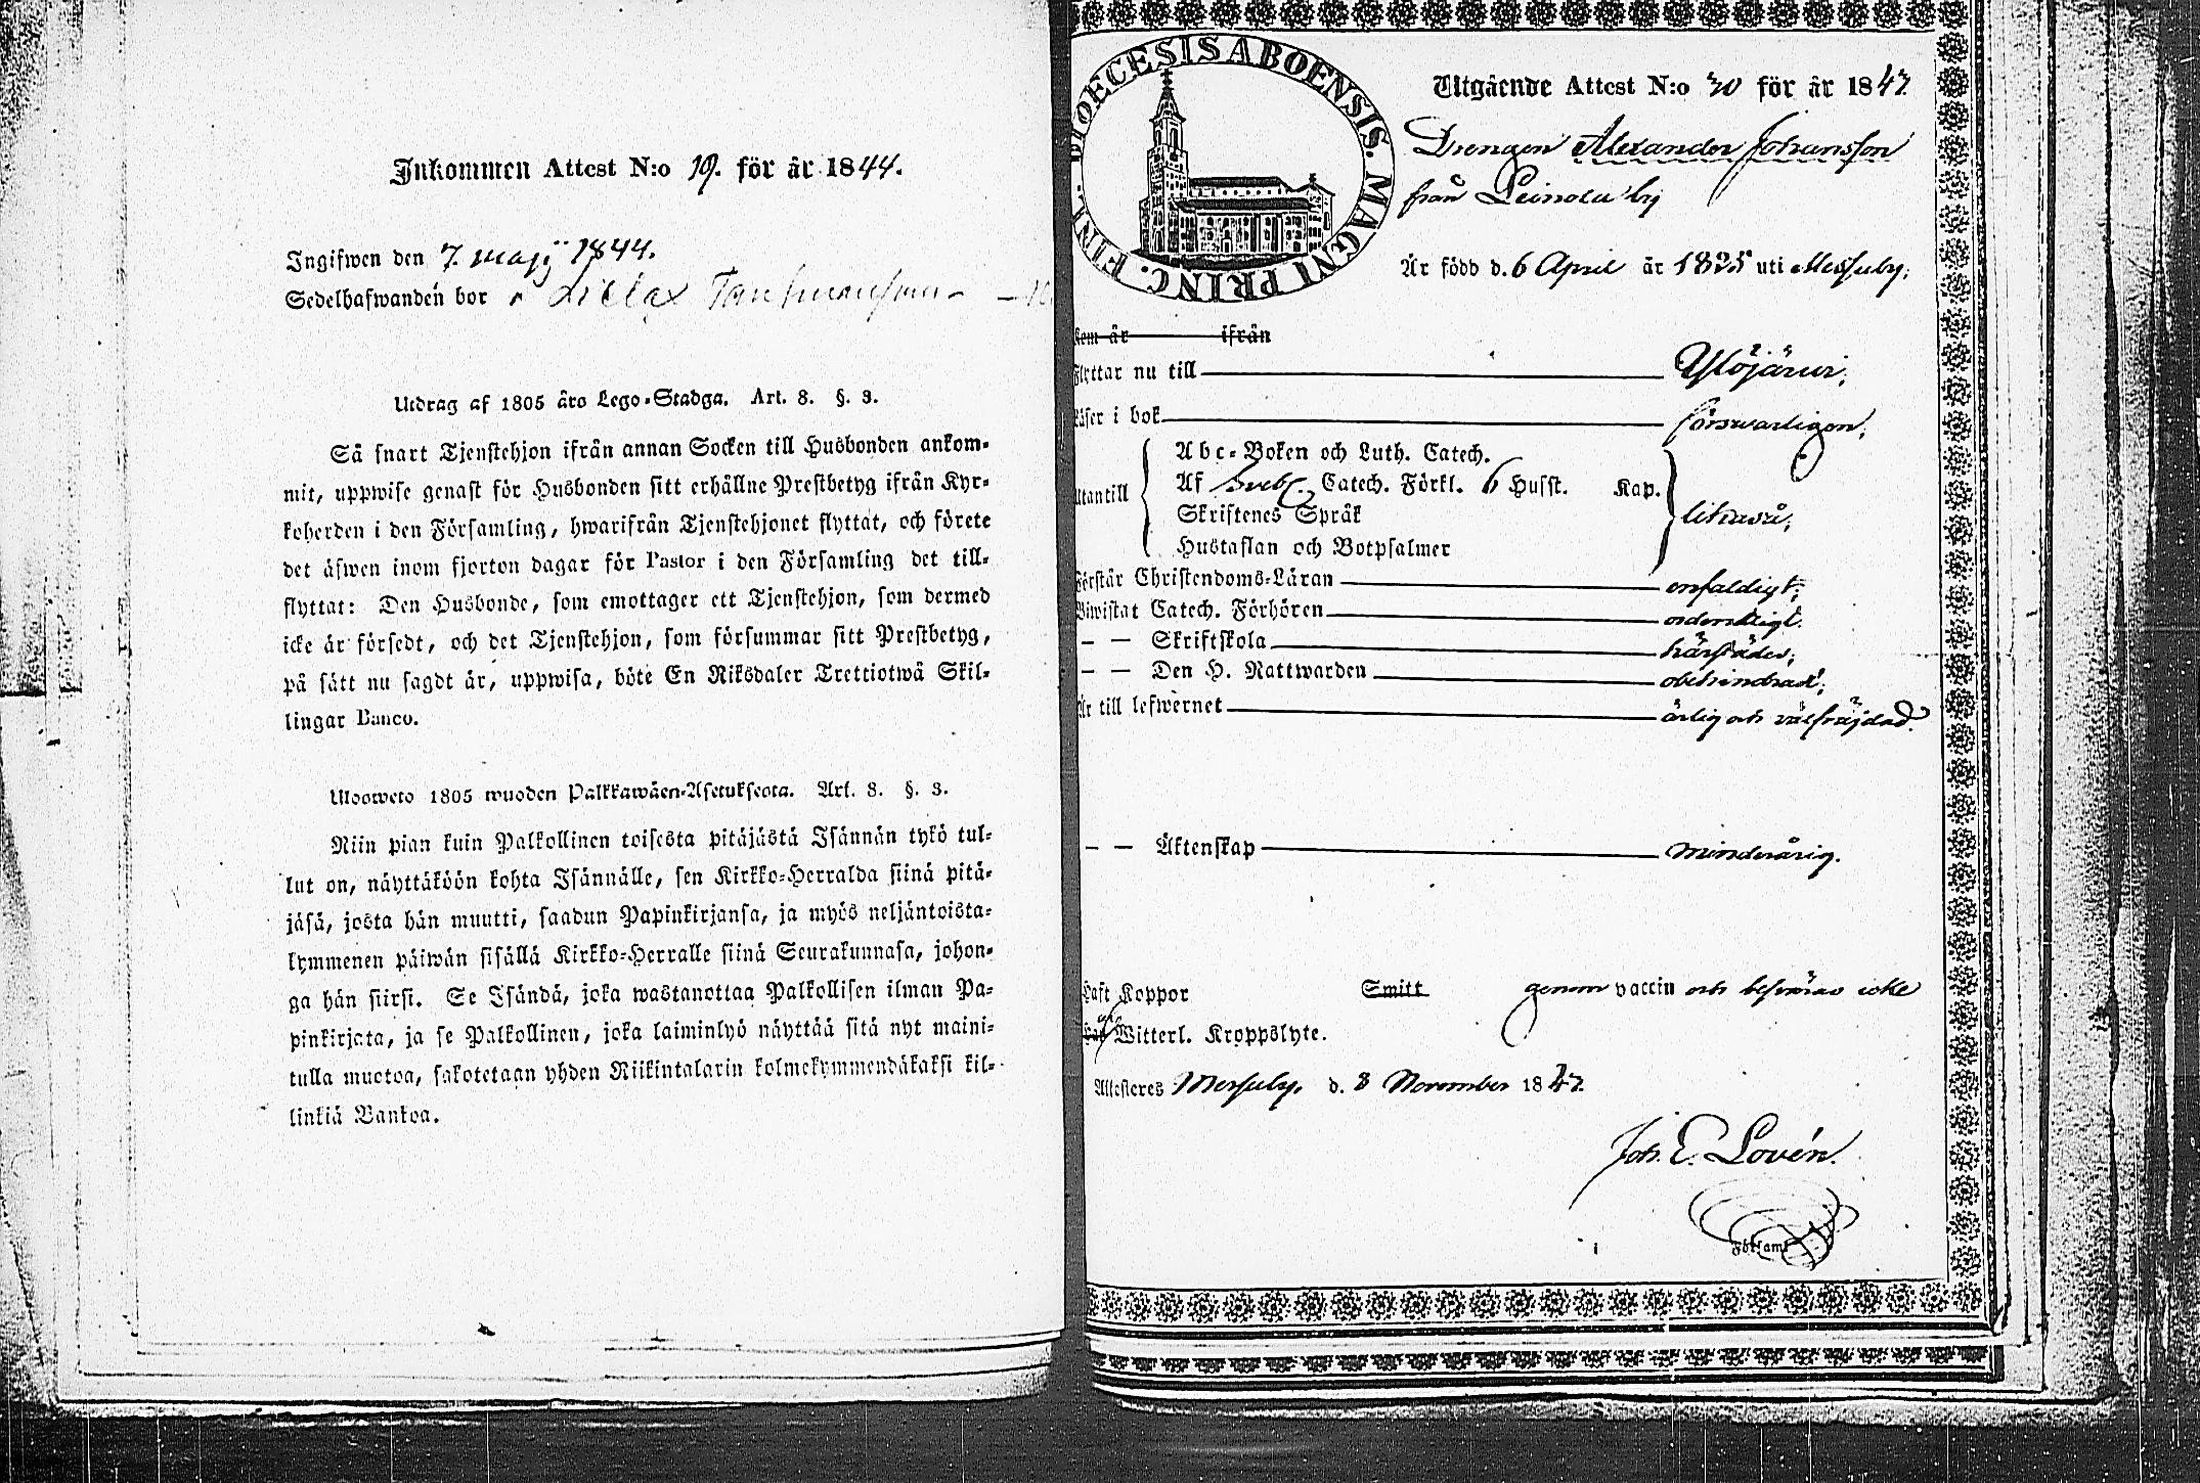 Inkommen Attest N:o 19. för år 1844.
Ingifwen den 7. maji 1844.
Sedelhafwanden bor
Utdrag af 1805 års Lego-Stadga. Art. 8. §. 3.
Så snart Tjenstehjon ifrån annan Socken till Husbonden ankom-
mit, uppwise genast för Husbonden sitt erhållne Prestbetyg ifrån Kyr-
koherden i den Församling, hwarifrån Tjenstehjonet flyttat, och förete
det äfwen inom fjorton dagar för Pastor i den Församling det till-
flyttat: Den Husbonde, som emottager ett Tjenstehjon, som dermed
icke är försedt, och det Tjenstehjon, som försummar sitt Prestbetyg,
på sätt nu sagdt är, uppwisa, böte En Riksdaler Trettiotwå Skil-
lingar Banco.
Ulosweto 1805 wuoden Palkkawäen-Asetuksesta. Art. 8. §. 3.
Niin pian kuin Palkollinen toisesta pitäjästä Isännän tykö tul-
lut on, näyttäköön kohta Isännälle, sen Kirkko-Herralda siinä pitä-
jäsä, josta hän muutti, saadun Papinkirjansa, ja myös neljäntoista-
kymmenen päiwän sisällä Kirkko-Herralle siinä Seurakunnasa, johon-
ga hän siirsi. Se Isändä, joka wastanottaa Palkollisen ilman Pa-
pinkirjata, ja se Palkollinen, joka laiminlyö näyttää sitä nyt maini-
tulla muotoa, sakotetaan yhden Riikintalarin kolmekymmendäkaksi kil-
linkiä Bankoa.
DIOECESIS ABOENSIS. MAGNI PRINC. FINL.
Utgående Attest N:o 30 för år 1847
Drengen Alexander Johansson
från Leinola by
Är född d. 6 April år 1825 uti Messuby;
Kom år ifrån
Flyttar nu till Ylöjärvi;
Läser i bok försvarligen;
Abc-Boken och Luth. Catech.
Utantill Af Sveb. Catech. Förkl. 6 Husst. Kap.
Skriftenes Språk
Hustaflan och Botpsalmer
likaså;
Förstår Christendoms-Läran enfaldigt;
Biwistat Catech. Förhören ordentligt.
– – Skriftskola härstädes;
– – Den H. Nattwarden obehindrad;
Är till lefwernet ärlig och välfräjdad.
– – Äktenskap minderårig.
Haft Koppor Smitt genom vaccin och besväras icke
af Witterl. Kroppslyte.
Attesteres Messuby, d. 8 November 1847.
Joh. E. Lovén.
Församl